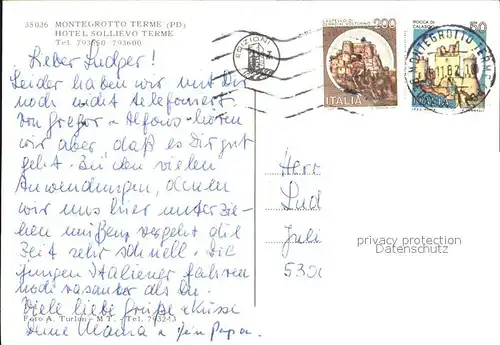 35036 MONTEGROTTO TERME (PD)
HOTEL SOLLIEVO TERME
Tel. 793600
Lieber Ludger!
Leider haben wir mit Dir
noch nicht telefoniert.
Von Gregor + Alfons hören
wir aber, daß es Dir gut
geht. Bei den vielen
Anwendungen, denen
wir uns hier unterzie-
hen müßen, vergeht die
Zeit sehr schnell. Die
jungen Italiener fahren
noch rasanter als Du.
Viele liebe Grüße + Küsse
Deine Mama + Dein Papa.
Foto A. Turlon - MT. - Tel. 793243
EDIZIONI
200
ITALIA
ROCCA DI CALASCIO
50
ITALIA
MONTEGROTTO TERME
Herr
Lud
Juli
530
privacy protection
Datenschutz